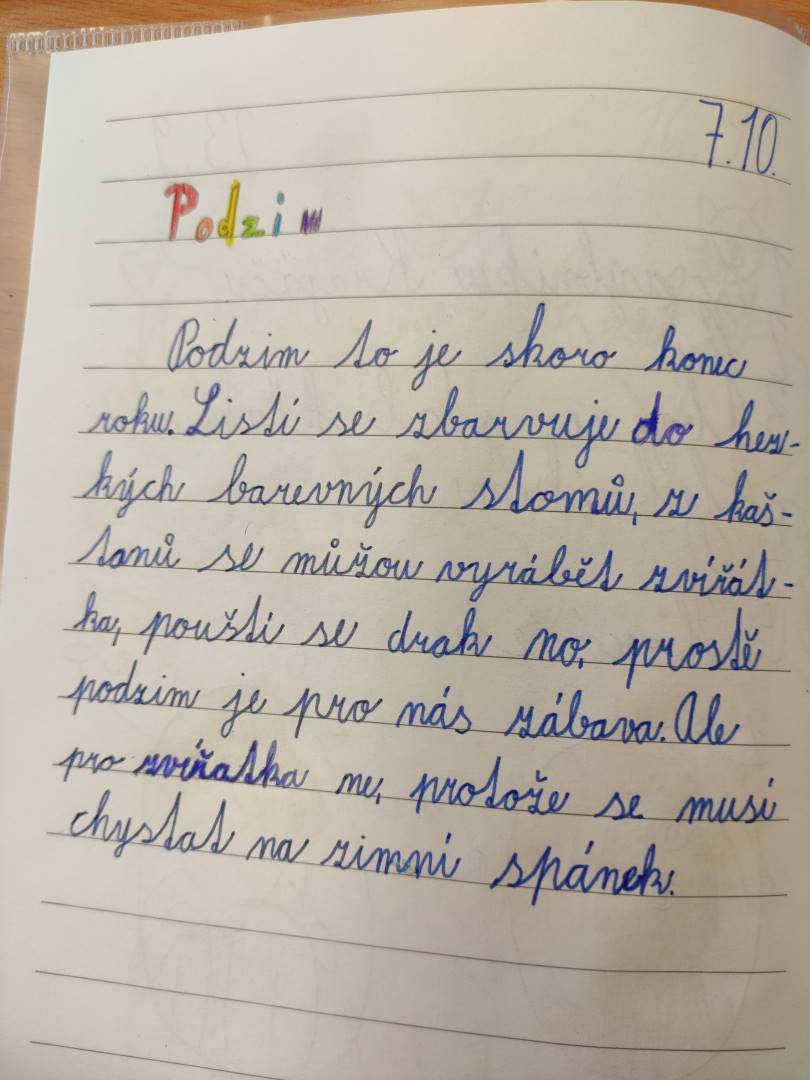 7.10.
Podzim
Podzim to je skoro konec
roku. Listí se zbarvuje do hez-
kých barevných stomů, z kaš-
tanů se můžou vyrábět zvířát-
ka, pouští se drak no, prostě
podzim je pro nás zábava. Ale
pro zvířatka ne, protože se musí
chystat na zimní spánek.